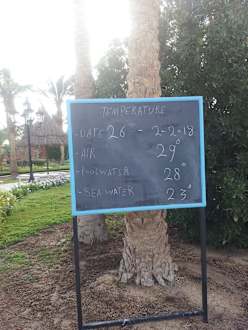 TEMPERATURE
-DATE 26 - 2-2-18
-AIR 29°
-POOLWATER 28°
-SEA WATER 23°